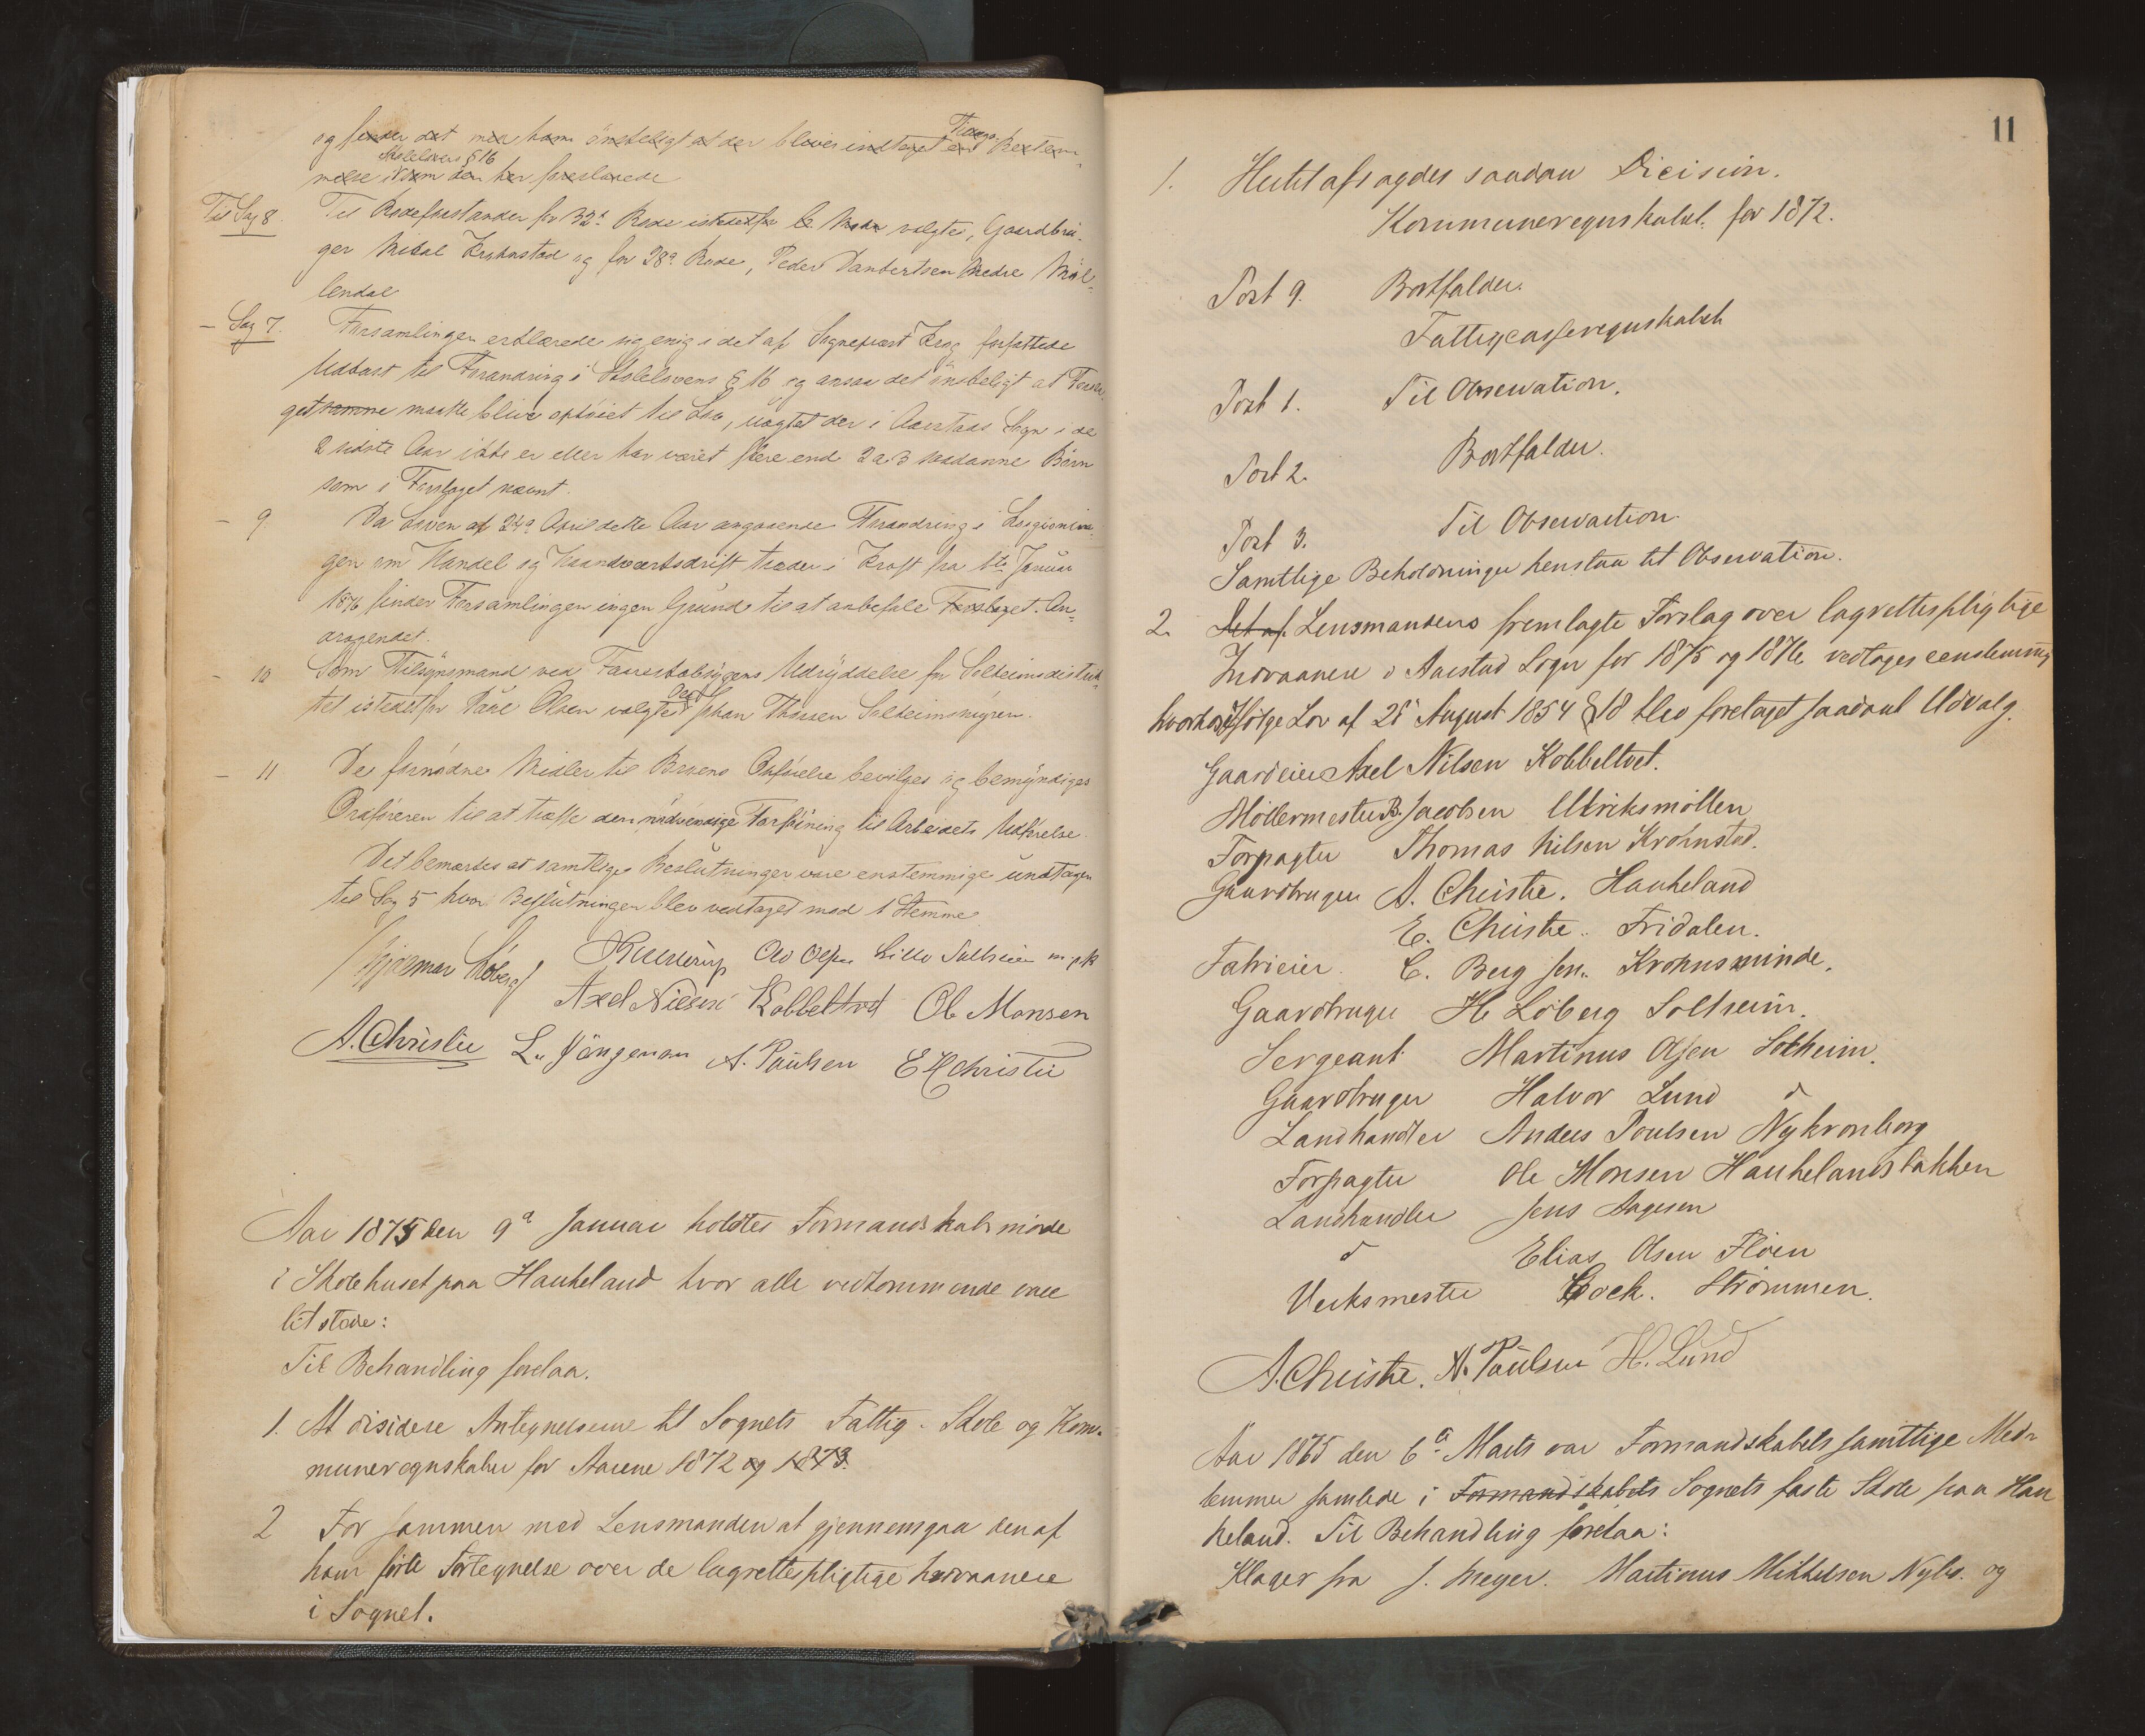 og finder det med ham ønskeligt at der bliver indtaget en Tillægs Bestem-
melse i Skolelovens § 16 som den her foreslaaede
Til Sag 8. Til Rodeforstander for 32te Rode istedetfor valgtes, Gaardbru-
ger Midal Krohnstad og for 28de Rode, Peder Danbertsen Nedre Møl-
lendal
- Sag 7. Forsamlingen erklærede sig enig i det af Sognepræst Krog forfattede
Udkast til Forandring i Skolelovens § 16 og ansaa det ønskeligt at Forsla-
get samme maatte blive ophøiet til Lov, uagtet der i Aarstads Sogn i de
2 sidste Aar ikke er eller har været flere end 2 a 3 saadanne Børn
som i Forslaget nævnt.
- 9. Da Loven af 24de April dette Aar angaaende Forandring i Lovgivnin-
gen om Handel og Haandværksdrift træder i Kraft fra 1te Januar
1876 finder Forsamlingen ingen Grund til at anbefale Forslaget. An-
dragendet.
- 10 Som Tilsynsmand ved Faareskabsygens Udryddelse for Solheimsdistrik-
tet istedetfor Paul Olsen valgtes Johan Thorsen Solheimsmyren.
- 11 De fornødne Midler til Broens Opførelse bevilges og bemyndiges
Ordføreren til at træffe den nødvendige Forføining til Arbeidets Udførelse.
Det bemærkes at samtlige Beslutninger vare enstemmige undtagen
til Sag 5 hvor Beslutningen blev vedtaget mod 1 Stemme
Hjalmar Løberg Ole Olsen Lille Solheim m.p.k
Axel Nilsen Kobbeltvet Ole Monsen
A. Christie L. Jüngeman A. Paulsen E H Christie
Aar 1875 den 9de Januar holdtes Formandskabsmøde
i Skolehuset paa Haukeland hvor alle vedkommende vare
tilstede:
Til Behandling forelaa.
1. At disidere Antegnelserne til Sognets Fattig- Skole og Kom-
muneregnskaber for Aarene 1872 og 1873.
2 For sammen med Lensmanden at gjennemgaa den af
ham førte Fortegnelse over de lagrettepligtige Indvaanere
i Sognet.
11
1. Hertil afsagdes saadan Dicision.
Kommuneregnskabet for 1872.
Post 9. Bortfalder.
Fattigcasseregnskabet
Post 1. Til Observation.
Post 2. Bortfalder.
Post 3. Til Observation.
Samtlige Beholdninger henstaa til Observation.
2. Det af Lensmandens fremlagte Forslag over lagrettespligtige
Indvaanere i Aarstad Sogn for 1875 og 1876 vedtoges eenstemmig
hvorhos Ifølge Lov af 28 August 1854 § 18 blev foretaget saadant Udvalg.
Gaardeier Axel Nilsen Kobbeltvet.
Møllermester B. Jacobsen Ulriksmøllen
Forpagter Thomas Nilsen Krohnstad.
Gaardbruger A. Christie. Haukeland
E. Christie. Fridalen.
Fabrieier C. Berg sen. Krohnsminde.
Gaardbruger H Løberg Solheim.
Sergeant Martinus Olsen Solheim.
Gaardbruger Halvor Lund d
Landhandler Anders Poulsen Nykronborg
Forpagter Ole Monsen Haukelandsbakken
Landhandler Jens Aagesen
d Elias Olsen Fløen
Verksmester Cock. Strømmen.
A. Christie. A. Paulsen H. Lund
Aar 1875 den 6de Marts var Formandskabets samtlige Med-
lemmer samlede i Formandskabets Sognets faste Skole paa Hau
keland. Til Behandling forelaa:
Klager fra J. Meyer. Martinus Mikkelsen Nybø. og